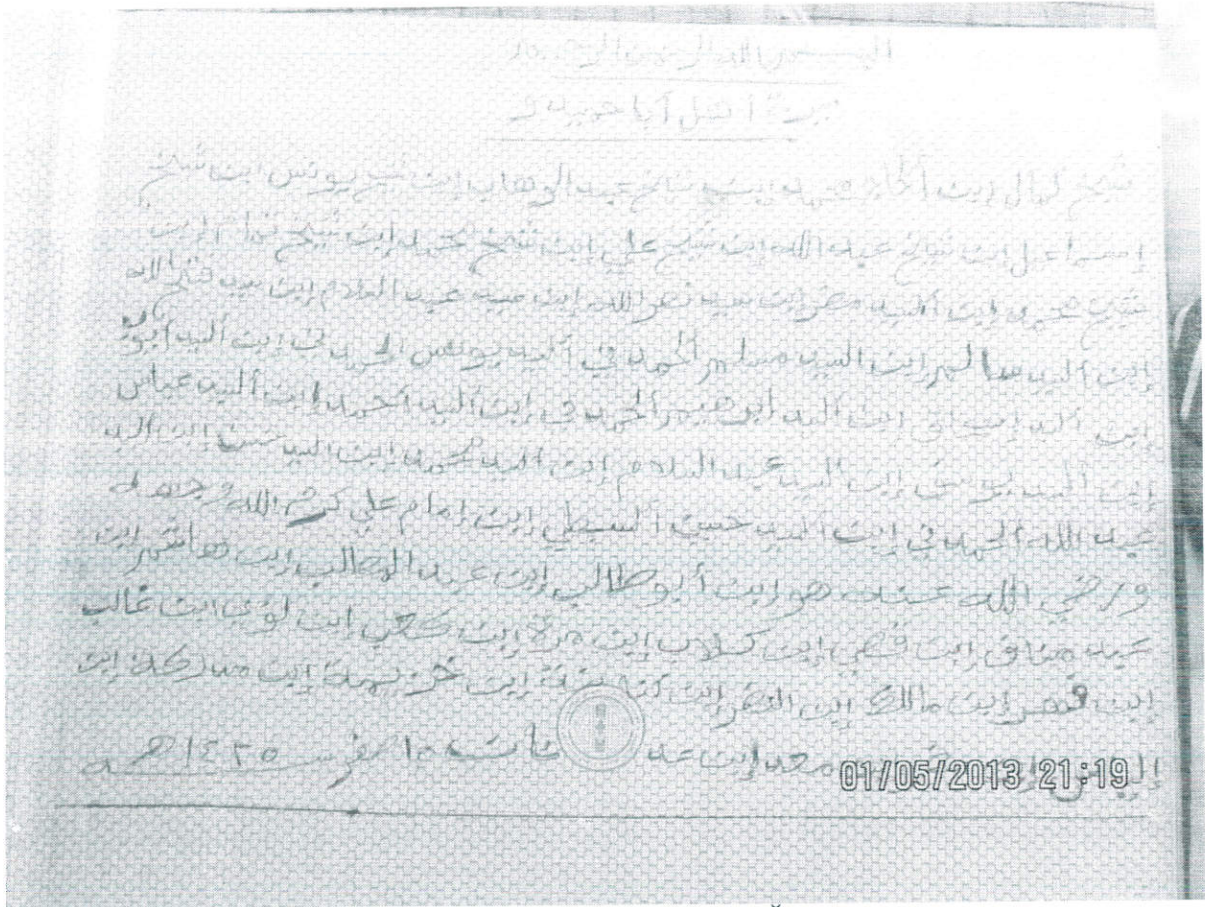 الله الرحمن الرحيم
أهل أبا
شيخ كمال إبن ألحاج محمد إبن شيخ عبد الوهاب إبن شيخ يونس ابن شيخ
إسماعيل إبن شيخ عبد الله إبن شيخ علي إبن شيخ محمد إبن شيخ إبن
شيخ محمد إبن ألسيد إبن سيد نصر الله إبن سيد عبد السلام إبن سيد فتح الله
إبن ألسيد سالم إبن السيد مسلم ألحمد في ألسيد يونس الحمد في إبن ألسيد أيوب
إبن ألسيد إبن ألسيد ابرهيم ألحمد في إبن ألسيد أحمد إبن ألسيد عباس
إبن ألسيد إبن ألسيد عبد السلام إبن ألسيد محمد إبن السيد حسن إبن السيد
عبد الله ألحمد في إبن السيد حسين ألسبطي إبن إمام علي كرم الله وجهه
ورضي الله عنه هو إبن أبو طالب إبن عبد المطالب إبن هاشم إبن
عبد مناف إبن قصي إبن كلاب إبن مرة إبن كعب إبن لؤي ابن غالب
إبن فهر إبن مالك إبن النضر إبن كنانة إبن خزيمة إبن مدركة إبن
إلياس معد إبن عد ١٠ صفر ١٤٢٥ هـ
01/05/2013 21:19